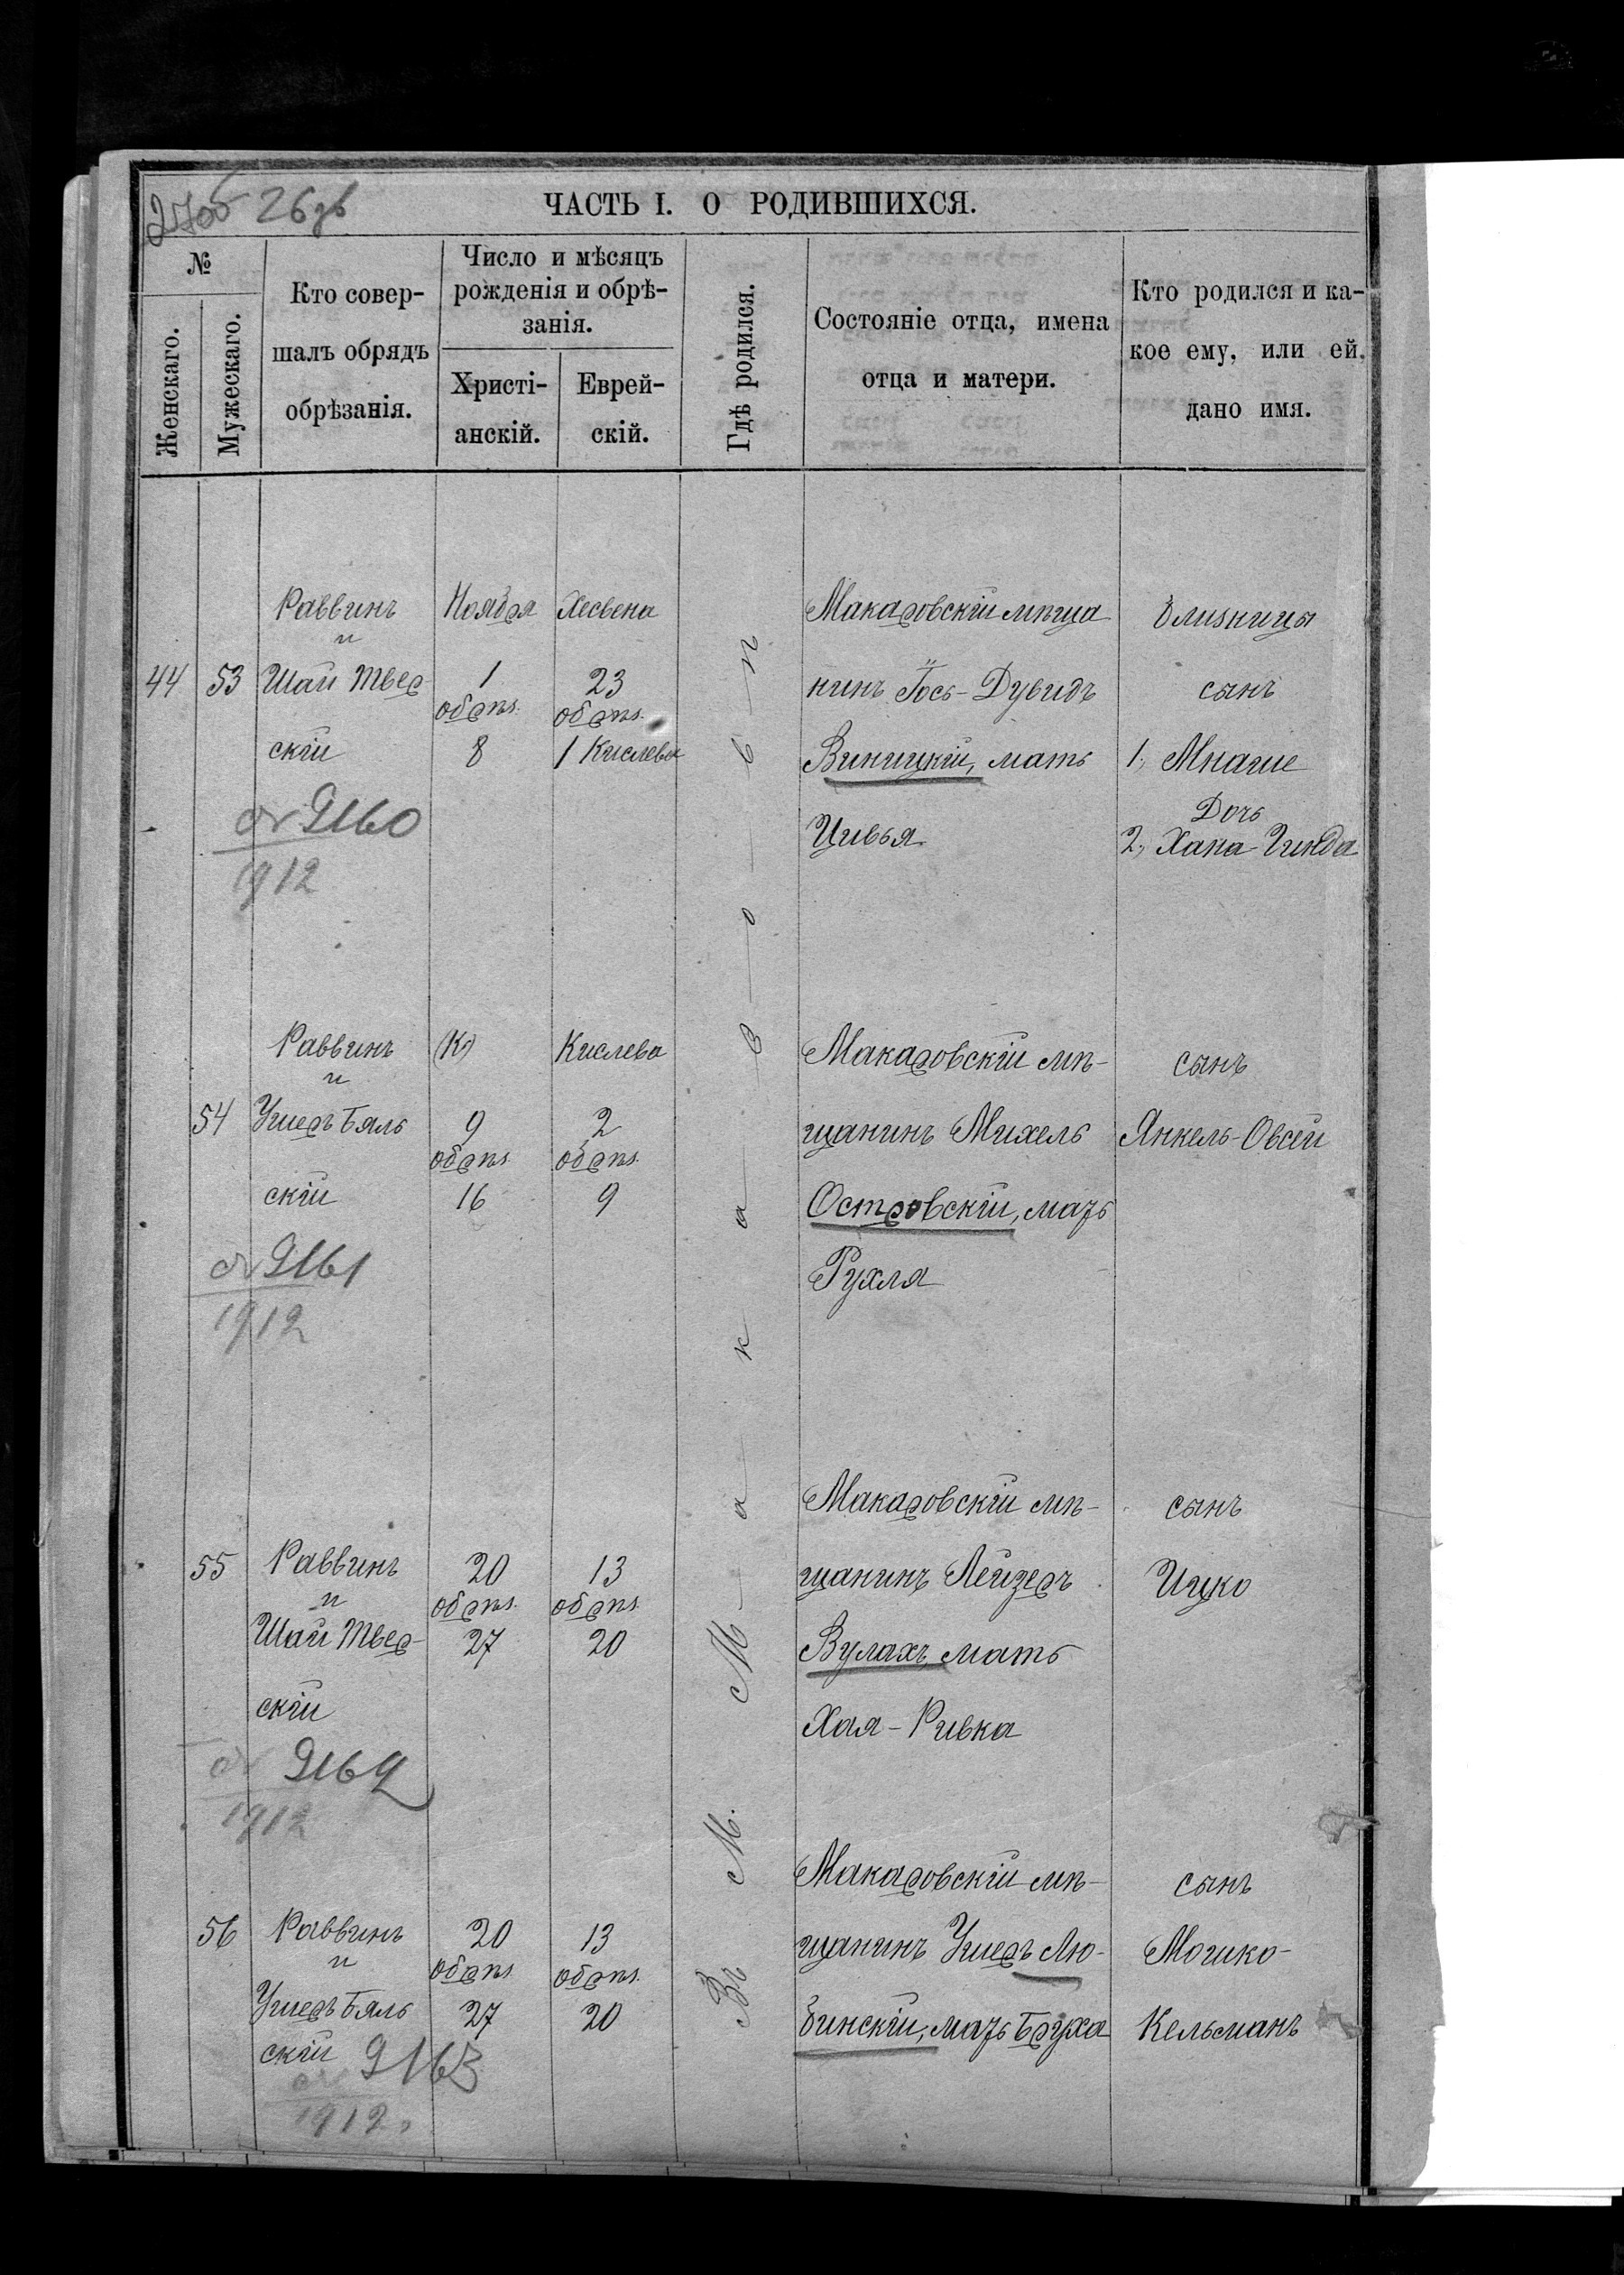 27об 26об
ЧАСТЬ I. О РОДИВШИХСЯ.
№
Женскаго.
Мужескаго.
Кто совер-
шалъ обрядъ
обрѣзанія.
Число и мѣсяцъ
рожденія и обрѣ-
занія.
Христі-
анскій.
Еврей-
скій.
Гдѣ родился.
Состояніе отца, имена
отца и матери.
Кто родился и ка-
кое ему, или ей,
дано имя.
Въ М. Макаровѣ
44 53
Раввинъ
и
Шай Твер-
скій
9160
1912
Ноября
1
обрѣз.
8
Хесвена
23
обрѣз.
1 Кислева
Макаровскій мѣща
нинъ Іось-Дувидъ
Виницкій, мать
Цивья
близницы
сынъ
1, Мнаше
Дочь
2, Хана-Гинда
54
Раввинъ
и
Ушеръ Бяль
скій
9161
1912
(К)
9
обрѣз.
16
Кислева
2
обрѣз.
9
Макаровскій мѣ-
щанинъ Михель
Островскій, мать
Рухля
сынъ
Янкель-Овсей
55
Раввинъ
и
Шай Твер-
скій
9162
1912
20
обрѣз.
27
13
обрѣз.
20
Макаровскій мѣ-
щанинъ Лейзеръ
Вулахъ, мать
Хая-Ривка
сынъ
Ицко
56
Раввинъ
и
Ушеръ Бяль
скій
9163
1912
20
обрѣз.
27
13
обрѣз.
20
Макаровскій мѣ-
щанинъ Ушеръ Лю-
бинскій, мать Бруха
сынъ
Мошко-
Кельманъ